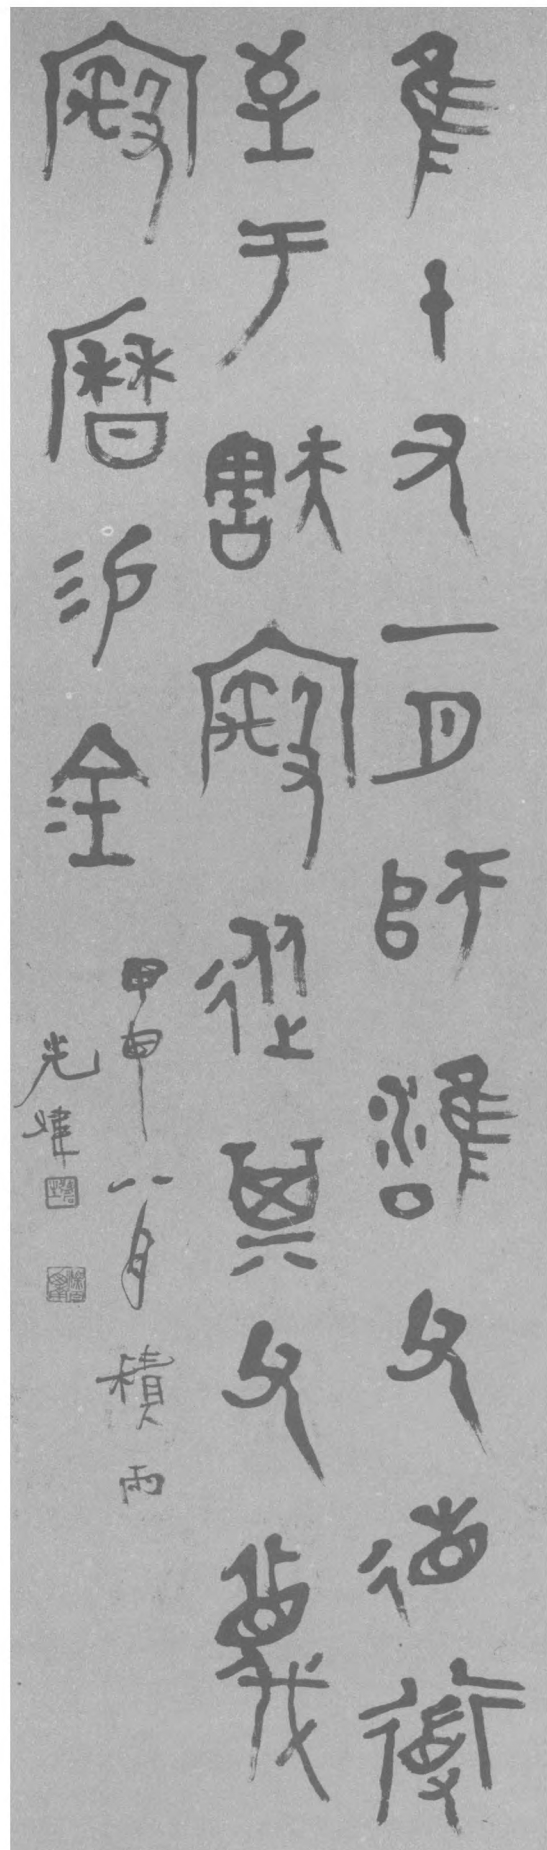 隹十又一月師雝父省道
至于㝬從其父蔑
曆易金
甲申八月積雨
光煒